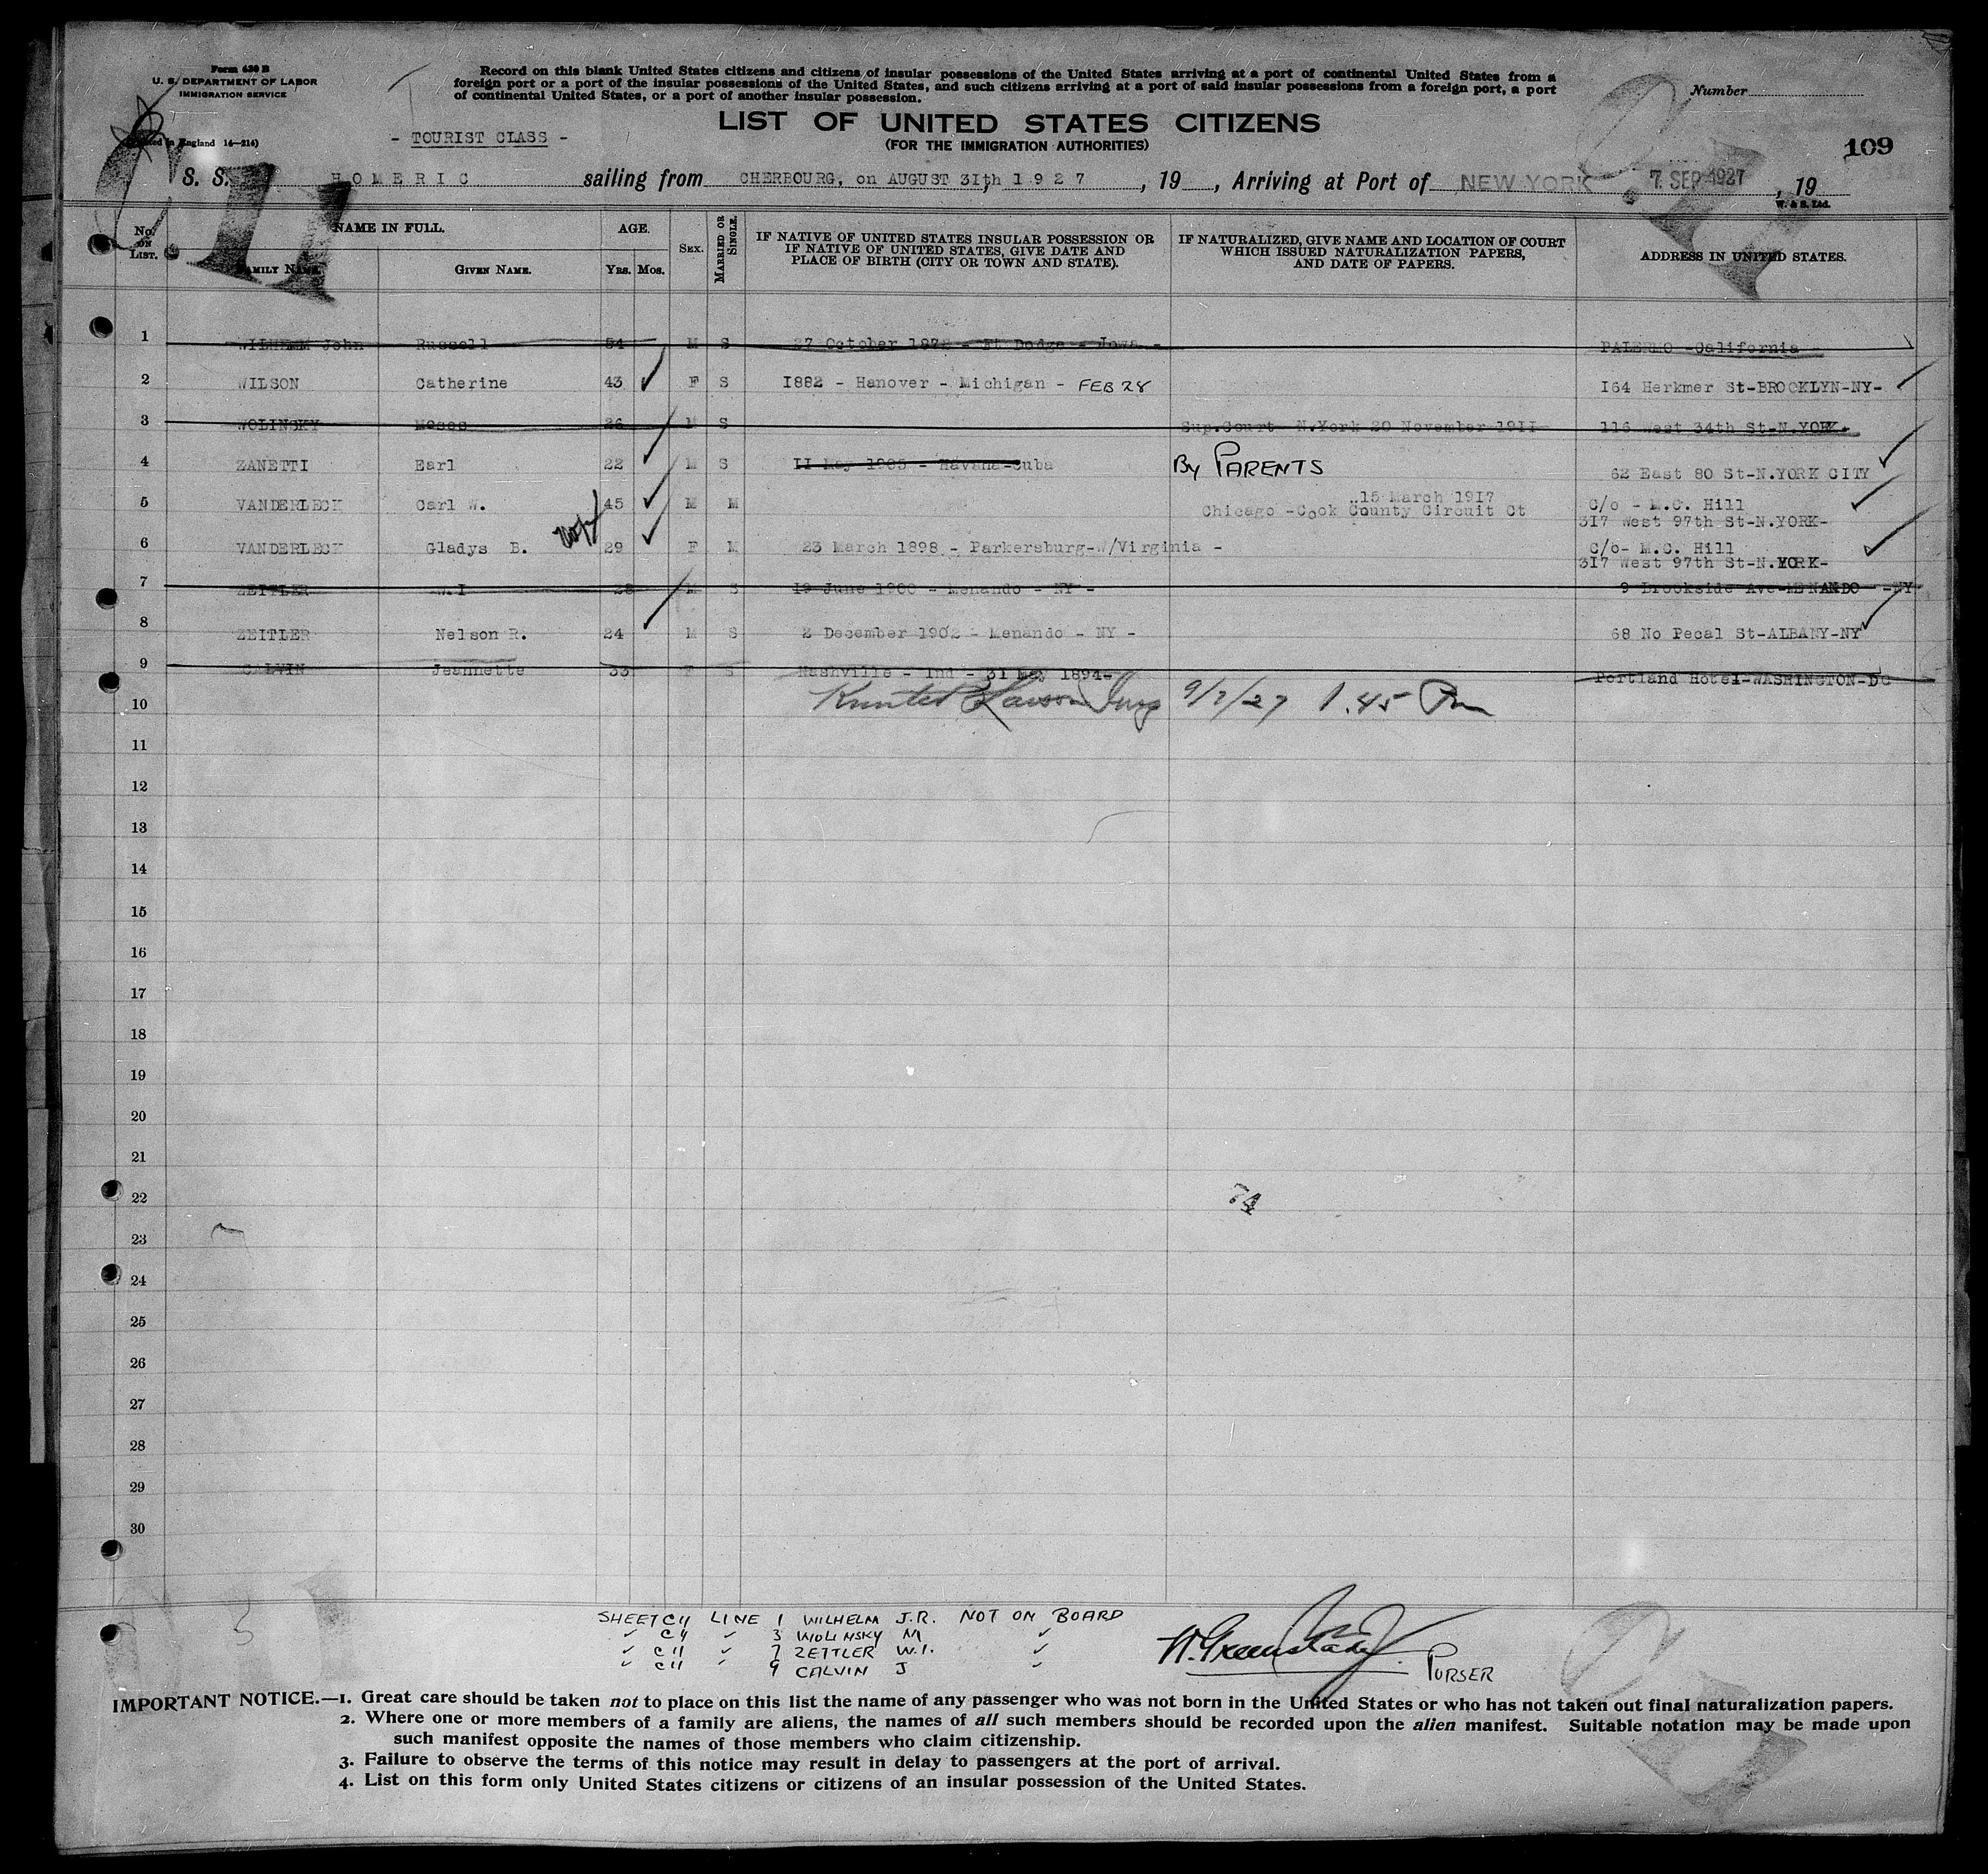 Form 630 B
U. S. DEPARTMENT OF LABOR
IMMIGRATION SERVICE
in England 14—214)
Record on this blank United States citizens and citizens of insular possessions of the United States arriving at a port of continental United States from a
foreign port or a port of the insular possessions of the United States, and such citizens arriving at a port of said insular possessions from a foreign port, a port
of continental United States, or a port of another insular possession.
Number
- TOURIST CLASS -
LIST OF UNITED STATES CITIZENS
(FOR THE IMMIGRATION AUTHORITIES)
109
S. S. HOMERIC sailing from CHERBOURG, on AUGUST 31th 1927, 19 , Arriving at Port of NEW YORK 7 SEP 1927, 19
W. & S. Ltd.
No. ON LIST. NAME IN FULL. AGE. SEX. MARRIED OR SINGLE. IF NATIVE OF UNITED STATES INSULAR POSSESSION OR IF NATIVE OF UNITED STATES, GIVE DATE AND PLACE OF BIRTH (CITY OR TOWN AND STATE). IF NATURALIZED, GIVE NAME AND LOCATION OF COURT WHICH ISSUED NATURALIZATION PAPERS, AND DATE OF PAPERS. ADDRESS IN UNITED STATES.
FAMILY NAME. GIVEN NAME. YRS. MOS.
1 WILHEMM John Russell 54 M S 27 October 1872 - Ft Dodge - Iowa - PALERMO -California -
2 WILSON Catherine 43 F S 1882 - Hanover - Michigan - FEB 28 164 Herkmer St-BROOKLYN-NY-
3 WOLINSKY Moses 26 M S Sup.Court N.York 20 November 1911 116 West 34th St-N.YORK-
4 ZANETTI Earl 22 M S 11 May 1905 - Havana-Cuba By PARENTS 62 East 80 St-N.YORK CITY
5 VANDERLECK Carl W. 45 M M 15 March 1917 Chicago -Cook County Circuit Ct C/o - M.C. Hill 317 West 97th St-N.YORK-
6 VANDERLECK Gladys B. 29 F M 23 March 1898 - Parkersburg-W/Virginia - C/o- M.C. Hill 317 West 97th St-N.YORK-
7 ZEITLER W.I 28 M S 19 June 1900 - Menando - NY - 9 Brookside Ave-MENANDO -NY
8 ZEITLER Nelson R. 24 M S 2 December 1902 - Menando - NY - 68 No Pecal St-ALBANY-NY
9 CALVIN Jeannette 33 F S Nashville - Ind - 31 May 1894- Portland Hotel-WASHINGTON-DC
10 Lawson 9/7/27 1.45 Pm
11
12
13
14
15
16
17
18
19
20
21
22
23
24
25
26
27
28
29
30
SHEET C11 LINE 1 WILHELM J.R. NOT ON BOARD
C11 3 WOLINSKY M
C11 7 ZEITLER W.I.
C11 9 CALVIN J
PURSER
IMPORTANT NOTICE.—1. Great care should be taken not to place on this list the name of any passenger who was not born in the United States or who has not taken out final naturalization papers.
2. Where one or more members of a family are aliens, the names of all such members should be recorded upon the alien manifest. Suitable notation may be made upon
such manifest opposite the names of those members who claim citizenship.
3. Failure to observe the terms of this notice may result in delay to passengers at the port of arrival.
4. List on this form only United States citizens or citizens of an insular possession of the United States.